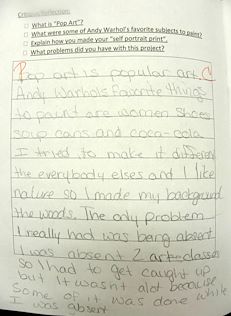 Critique/Reflection:
□ What is "Pop Art"?
□ What were some of Andy Warhol's favorite subjects to paint?
□ Explain how you made your "self portrait print".
□ What problems did you have with this project?
Pop art is popular art.
Andy Warhols favorite things
to paint are women shoes
soup cans and coca-cola
I tried to make it different
the everybody elses and I like
nature so I made my background
the woods. The only problem
I really had was being absent
I was absent 2 art classes
so I had to get caught up
but it wasnt alot because
some of it was done while
I was absent